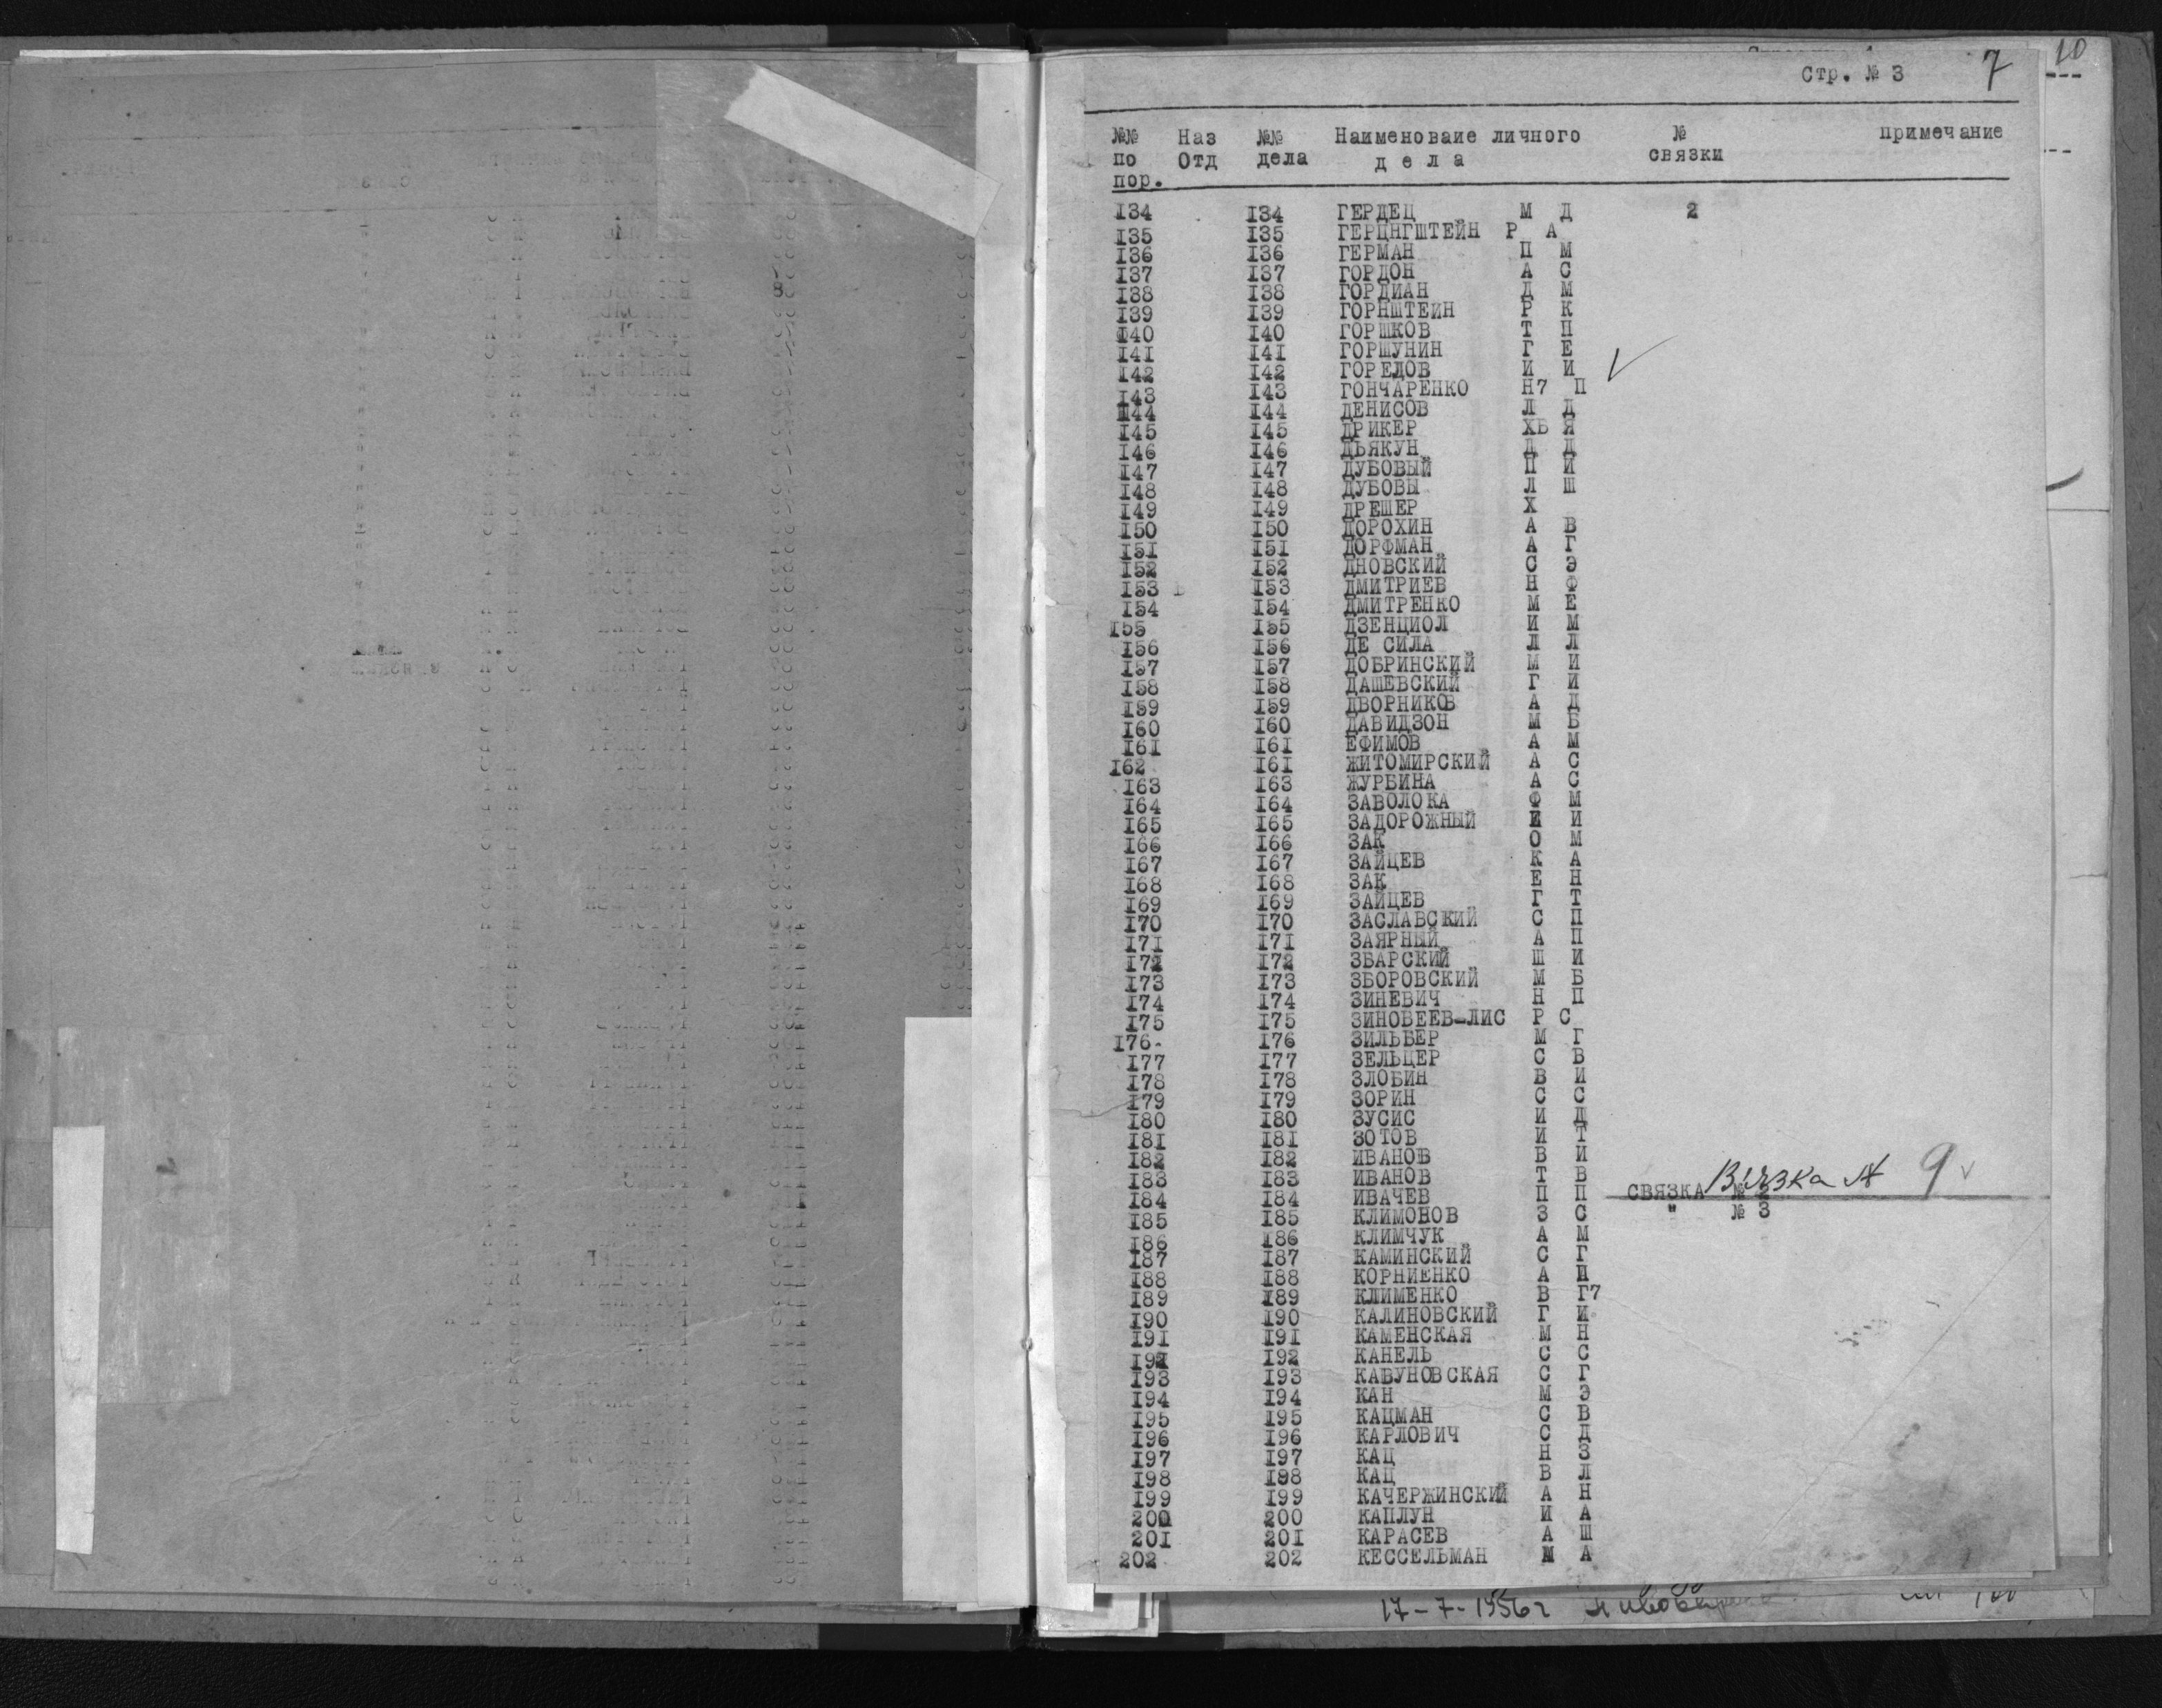 Стр. № 3 7 10
№№ Наз №№ Наименоваие личного № примечание
по Отд дела дела связки
пор.
I34 I34 ГЕРДЕЦ М Д 2
I35 I35 ГЕРЦНГШТЕЙН Р А
I36 I36 ГЕРМАН П М
I37 I37 ГОРДОН А С
I38 I38 ГОРДИАН Д М
I39 I39 ГОРНШТЕИН Р К
I40 I40 ГОРШКОВ Т П
I4I I4I ГОРШУНИН Г Е
I42 I42 ГОРЕДОВ И И
I43 I43 ГОНЧАРЕНКО Н7 П
I44 I44 ДЕНИСОВ Л Д
I45 I45 ДРИКЕР ХЬ Я
I46 I46 ДЬЯКУН Д Д
I47 I47 ДУБОВЫЙ П И
I48 I48 ДУБОВЫ Л Ш
I49 I49 ДРЕШЕР Х
I50 I50 ДОРОХИН А В
I5I I5I ДОРФМАН А Г
I52 I52 ДНОВСКИЙ С Э
I53 I53 ДМИТРИЕВ Н Ф
I54 I54 ДМИТРЕНКО М Е
I55 I55 ДЗЕНЦИОЛ И М
I56 I56 ДЕ СИЛА Л Л
I57 I57 ДОБРИНСКИЙ М И
I58 I58 ДАШЕВСКИЙ Г И
I59 I59 ДВОРНИКОВ А Д
I60 I60 ДАВИДЗОН М Б
I6I I6I ЕФИМОВ А М
I62 I6I ЖИТОМИРСКИЙ А С
I63 I63 ЖУРБИНА А С
I64 I64 ЗАВОЛОКА Ф М
I65 I65 ЗАДОРОЖНЫЙ Е И
I66 I66 ЗАК О М
I67 I67 ЗАЙЦЕВ К А
I68 I68 ЗАК Е Н
I69 I69 ЗАЙЦЕВ Г Т
I70 I70 ЗАСЛАВСКИЙ С П
I7I I7I ЗАЯРНЫЙ А П
I72 I72 ЗБАРСКИЙ Ш И
I73 I73 ЗБОРОВСКИЙ М Б
I74 I74 ЗИНЕВИЧ Н П
I75 I75 ЗИНОВЕЕВ-ЛИС Р С
I76- I76 ЗИЛЬБЕР М Г
I77 I77 ЗЕЛЬЦЕР С В
I78 I78 ЗЛОБИН В И
I79 I79 ЗОРИН С С
I80 I80 ЗУСИС И Д
I8I I8I ЗОТОВ И Т
I82 I82 ИВАНОВ В И
I83 I83 ИВАНОВ Т В Вязка № 9
I84 I84 ИВАЧЕВ П П СВЯЗКА № 2
I85 I85 КЛИМОНОВ З С " № 3
I86 I86 КЛИМЧУК А М
I87 I87 КАМИНСКИЙ С Г
I88 I88 КОРНИЕНКО А П
I89 I89 КЛИМЕНКО В Г7
I90 I90 КАЛИНОВСКИЙ Г И
I9I I9I КАМЕНСКАЯ М Н
I92 I92 КАНЕЛЬ С С
I93 I93 КАВУНОВСКАЯ С Г
I94 I94 КАН М Э
I95 I95 КАЦМАН С В
I96 I96 КАРЛОВИЧ С Д
I97 I97 КАЦ Н З
I98 I98 КАЦ В Л
I99 I99 КАЧЕРЖИНСКИЙ А Н
200 200 КАПЛУН И А
20I 20I КАРАСЕВ А Ш
202 202 КЕССЕЛЬМАН М А
17-7-1956г